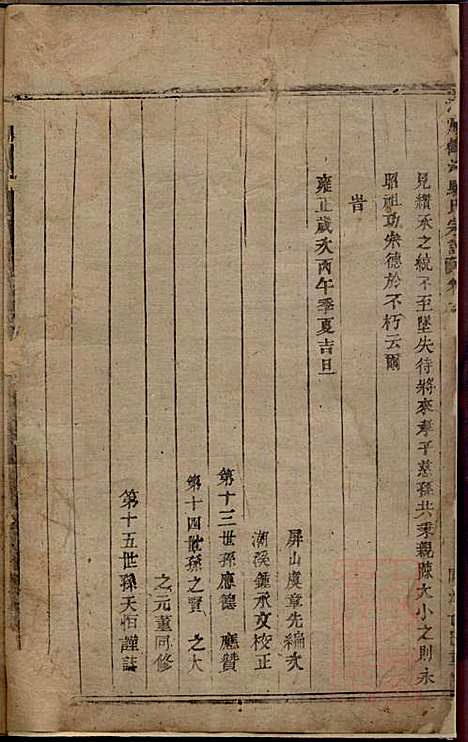 見纘承之統不至墜失待將來孝子慈孫共秉親陳大小之則永
昭祖功宗德於不朽云爾
旹
雍正歲次丙午季夏吉旦
屏山虞章先編次
潮溪鍾承文校正
第十三世孫應德 應贊
第十四世孫之賢 之大
之元董同修
第十五世孫天恒謹誌